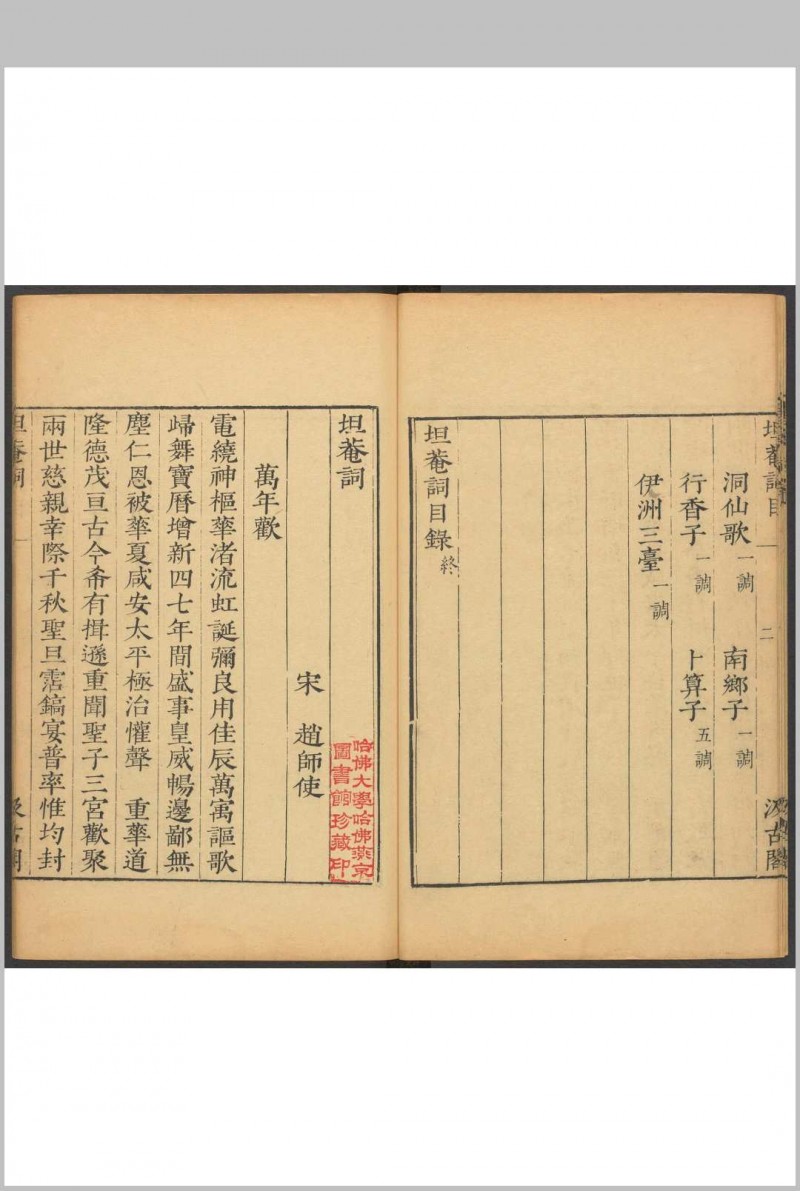 坦菴詞目 二 汲古閣
洞仙歌 一調 南鄉子 一調
行香子 一調 卜算子 五調
伊洲三臺 一調
坦菴詞目錄 終
坦菴詞
宋 趙師使
萬年歡
電繞神樞華渚流虹誕彌良用佳辰萬寓謳歌
歸舞寶曆增新四七年間盛事皇威暢邊鄙無
塵仁恩被華夏咸安太平極治懽聲 重華道
隆德茂亘古今希有揖遜重聞聖子三宮歡聚
兩世慈親幸際千秋聖旦霑鎬宴普率惟均封
坦菴詞 一 汲古閣
哈佛大學哈佛燕京
圖書館珍藏印